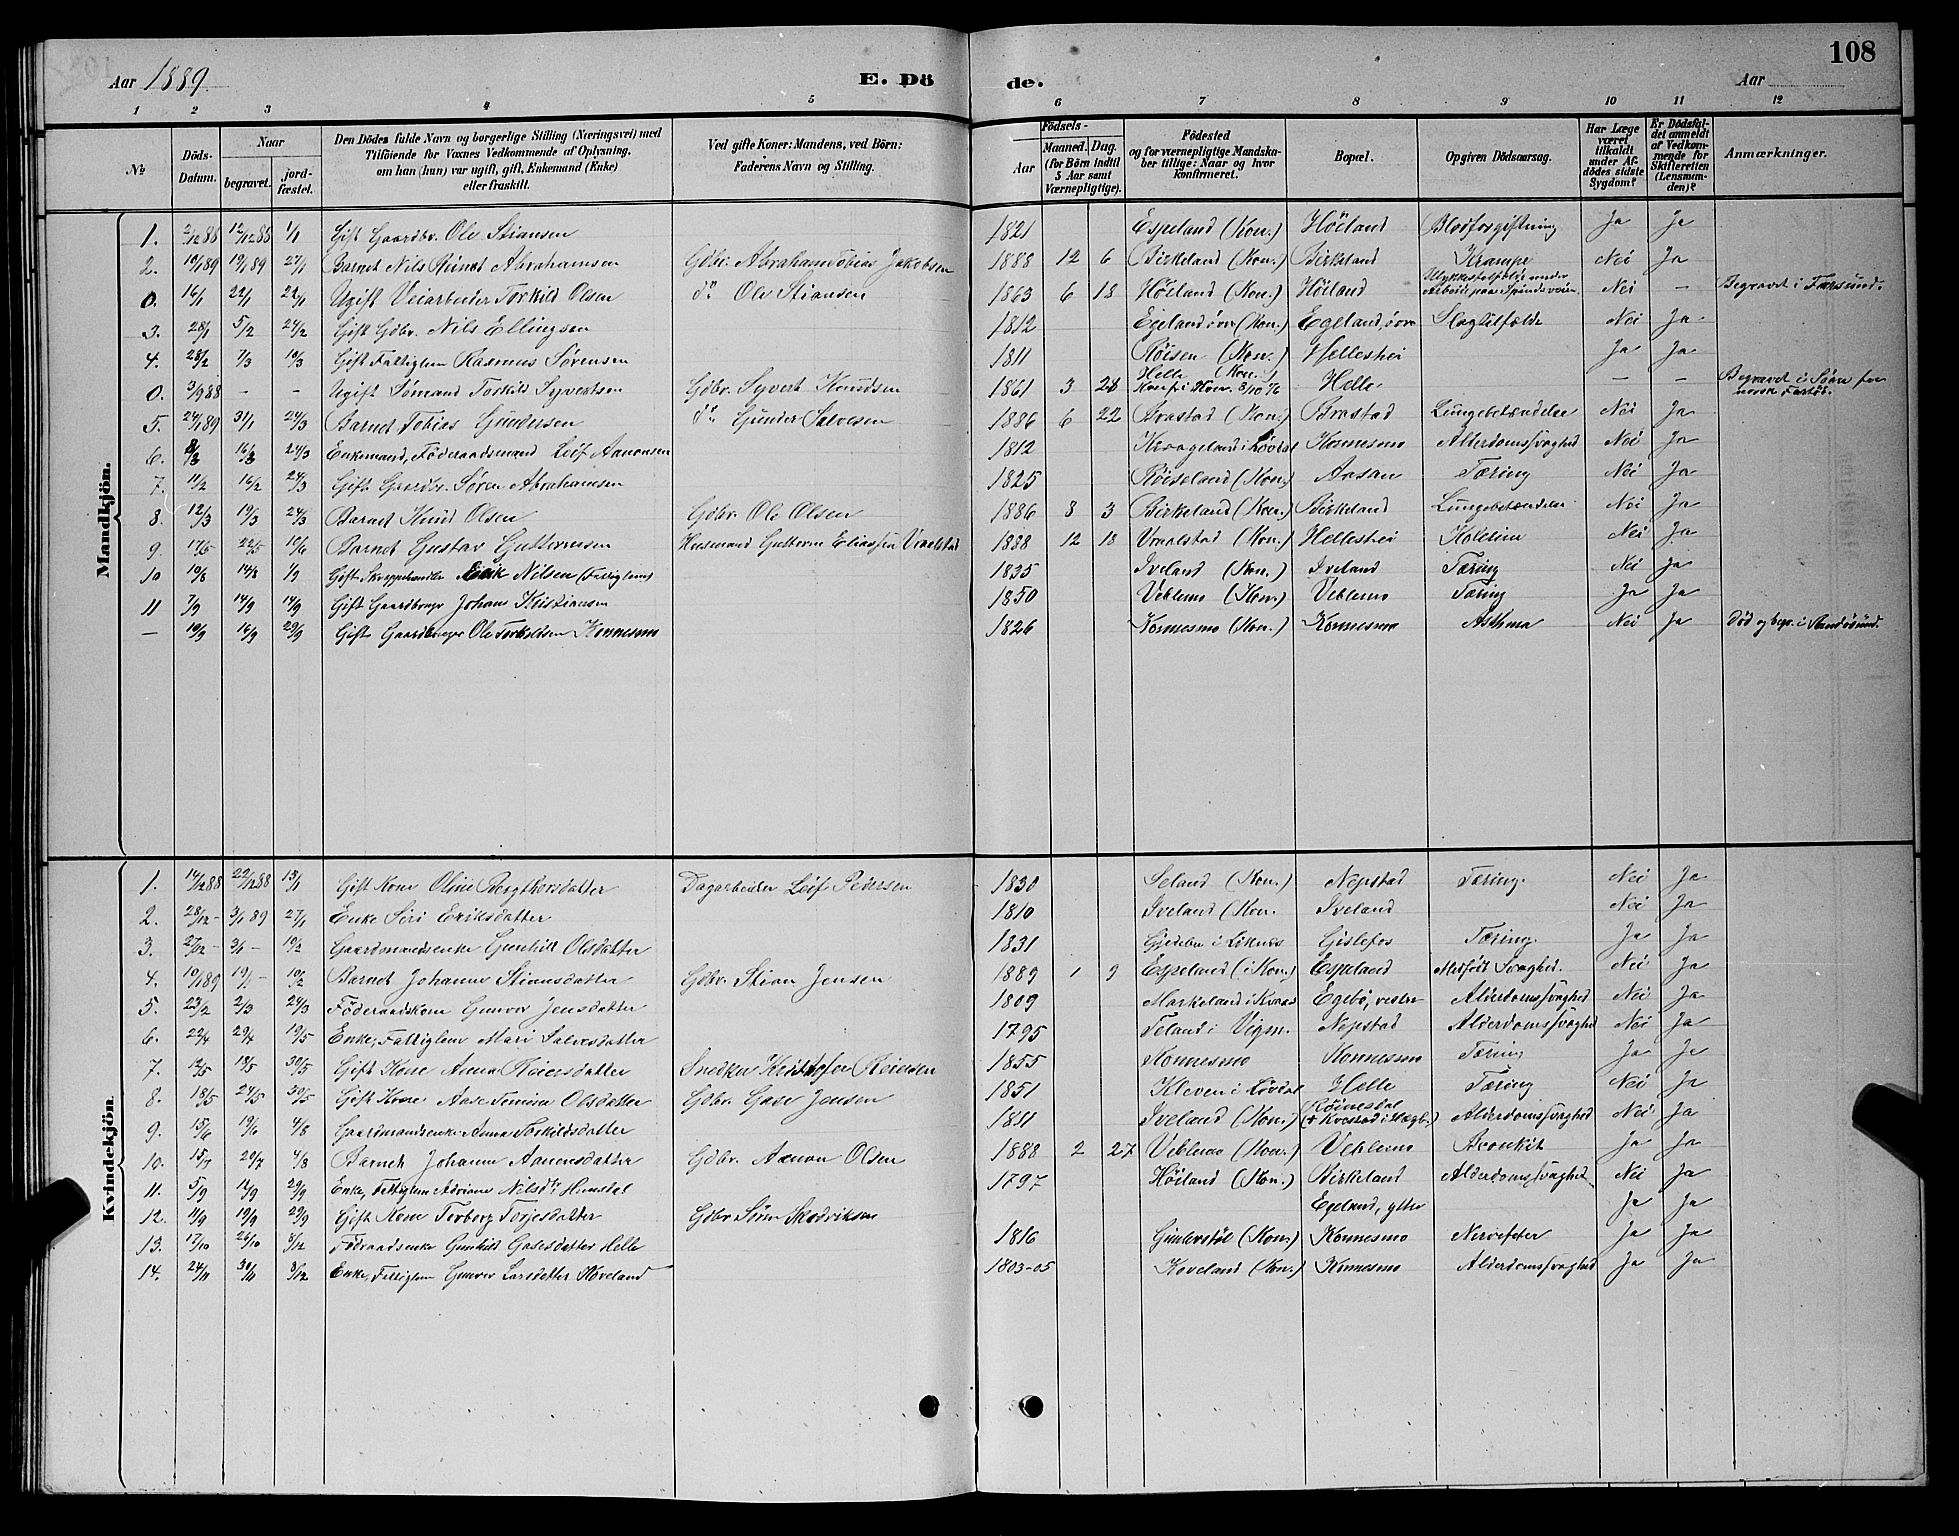 Aar 1889. E. Dö de. Aar 108
1 2 3 4 5 6 7 8 9 10 11 12
No Döds-Datum. Naar begravet. jord-fæstet. Den Dödes fulde Navn og borgerlige Stilling (Næringsvei) med Tilföiende for Voxnes Vedkommende af Oplysning, om han (hun) var ugift, gift, Enkemand (Enke) eller fraskilt. Ved gifte Koner: Mandens, ved Börn: Faderens Navn og Stilling. Födsels- Aar Maaned. Dag. (for Börn indtil 5 Aar samt Værnepligtige). Födested og for værnepligtige Mandskaber tillige: Naar og hvor konfirmeret. Bopæl. Opgiven Dödsaarsag. Har Læge været tilkaldt under Afdödes sidste Sygdom? Er Dödsfaldet anmeldt af Vedkommende for Skifteretten (Lensmanden)? Anmærkninger.
Mandkjön.
1. 2/12 88 12/12 88 1/1 Gift Gaardbr. Ole Stiansen 1821 Espeland (Kon.) Höiland Blodforgiftning Ja Ja
2. 10/1 89 19/1 89 27/1 Barnet Nils Abrahamsen Gdbr. Abraham Tobias Jakobsen 1888 12 6 Birkeland (Kon.) Birkeland Krampe Nei Ja
0. 16/1 22/1 22/1 Ugift Veiarbeider Torkild Olsen do Ole Stiansen 1863 6 18 Höiland (Kon.) Höiland Ulykkestilfælde under Arbeide paa Spindsveien. Nei - Begravet i Farsund.
3. 28/1 5/2 24/2 Gift Gdbr. Nils Ellingsen 1812 Egeland, övre (Kon.) Egeland, övre Slagtilfælde Nei Ja
4. 28/2 7/3 10/3 Gift Fattiglem Rasmus Sörensen 1811 Röisen (Kon.) Hellestrei Ja Ja
0. 3/9 88 - - Ugift Sömand Torkild Syvertsen Gdbr. Syvert Knudsen 1861 3 28 Helle (Kon.) Konf. i Kon. 8/10 76 Helle - - Begravet i Söen fra norsk Fartöi.
5. 24/1 89 31/1 24/3 Barnet Tobias Gundersen do Gunder Salvesen 1886 6 22 Brastad (Kon.) Brastad Lungebetændelse Nei Ja
6. 8/3 16/3 24/3 Enkemand, Föderaadsmand Leif Aanonsen 1812 Kvaageland i Lövdal Konnesmo Alderdomssvaghed Nei Ja
7. 11/2 16/2 24/3 Gift Gaardbr. Sören Abrahamsen 1825 Röiseland (Kon.) Aasan Tæring Nei Ja
8. 12/3 19/3 24/3 Barnet Knud Olsen Gdbr. Ole Olsen 1886 8 3 Birkeland (Kon.) Birkeland Lungebetændelse Nei Ja
9. 17/5 22/5 10/6 Barnet Gustav Guttormsen Husmand Guttorm Eliassen Vraalstad 1888 12 18 Vraalstad (Kon.) Hellestrei Kolerine Nei Ja
10 10/8 14/8 1/9 Gift Skreppehandler Erik Nilsen (Fattiglem) 1835 Iveland (Kon.) Iveland Tæring Nei Ja
11 7/9 14/9 14/9 Gift Gaardbruger Johan Kristiansen 1850 Veblemo (Kon.) Veblemo Tæring Ja Ja
- 10/9 16/9 29/9 Gift Gaardbruger Ole Torkildsen Konnesmo 1826 Konnesmo (Kon.) Konnesmo Asthma Nei Ja Död og begr. i
Kvindekjön.
1. 14/12 88 22/12 88 13/1 Gift Kone Oline Bergthorsdatter Dagarbeider Leif Pedersen 1830 Seland (Kon.) Nepstad Tæring. Nei Ja
2. 28/12 - 3/1 89 27/1 Enke Siri Eriksdatter 1810 Iveland (Kon. Iveland Nei Ja
3. 27/12 - 3/1 - 10/2 Gaardmandsenke Gunhild Olsdatter 1831 Gjedebo i Liknes Gislefos Tæring. Ja Ja
4. 10/1 89 19/1 - 10/2 Barnet Johanne Stiansdatter Gdbr. Stian Jensen 1889 1 9 Espeland (i Kon.) Espeland Medfödt Svaghed. Nei Ja
5. 23/2 2/3 24/3 Föderaadskone Gunvor Jensdatter 1809 Markeland i Kvaas Egebö, vestre Alderdomssvaghed Nei Ja
6. 22/4 29/4 19/5 Enke, Fattiglem Mari Salvesdatter 1795 Teland i Vigm. Nepstad Alderdomssvaghed Nei Ja
7. 12/5 18/5 30/5 Gift Kone Anna Reiersdatter Snedker Kristofer Reiersen 1855 Konnesmo Konnesmo Tæring Ja Ja
8. 18/5 24/5 30/5 Gift Kone Aase Tomine Olsdatter Gdbr. Gase Jensen 1851 Kleven i Lövdal Helle Tæring Nei Ja
9. 15/6 19/6 4/8 Gaardmandsenke Anna Torkildsdatter 1811 Iveland (Kon.) Röinesdal († Kvestad i Hægb.) Alderdomssvaghed Nei Ja
10. 15/7 20/7 4/8 Barnet Johanne Aanensdatter Gdbr. Aanon Olsen 1888 2 27 Veblemo (Kon.) Veblemo Bronkit Ja Ja
11. 5/9 12/9 29/9 Enke, Fattiglem Adriane Nilsdtr. Homdal 1797 Höiland (Kon.) Birkeland Alderdomssvaghed Nei Ja
12. 11/9 19/9 29/9 Gift Kone Torborg Torjesdatter Gdbr. Sören Egeland, ytre Ja Ja
13. 17/10 26/10 8/12 Föderaadsenke Gunhild Gasesdatter Helle 1816 Ginlerstöl (Kon.) Konnesmo Nervefeber Ja Ja
14. 24/11 30/11 8/12 Enke, Fattiglem Gunvor Larsdatter Hoveland 1803-05 Hoveland (Kon.) Konnesmo Alderdomssvaghed Ja Ja